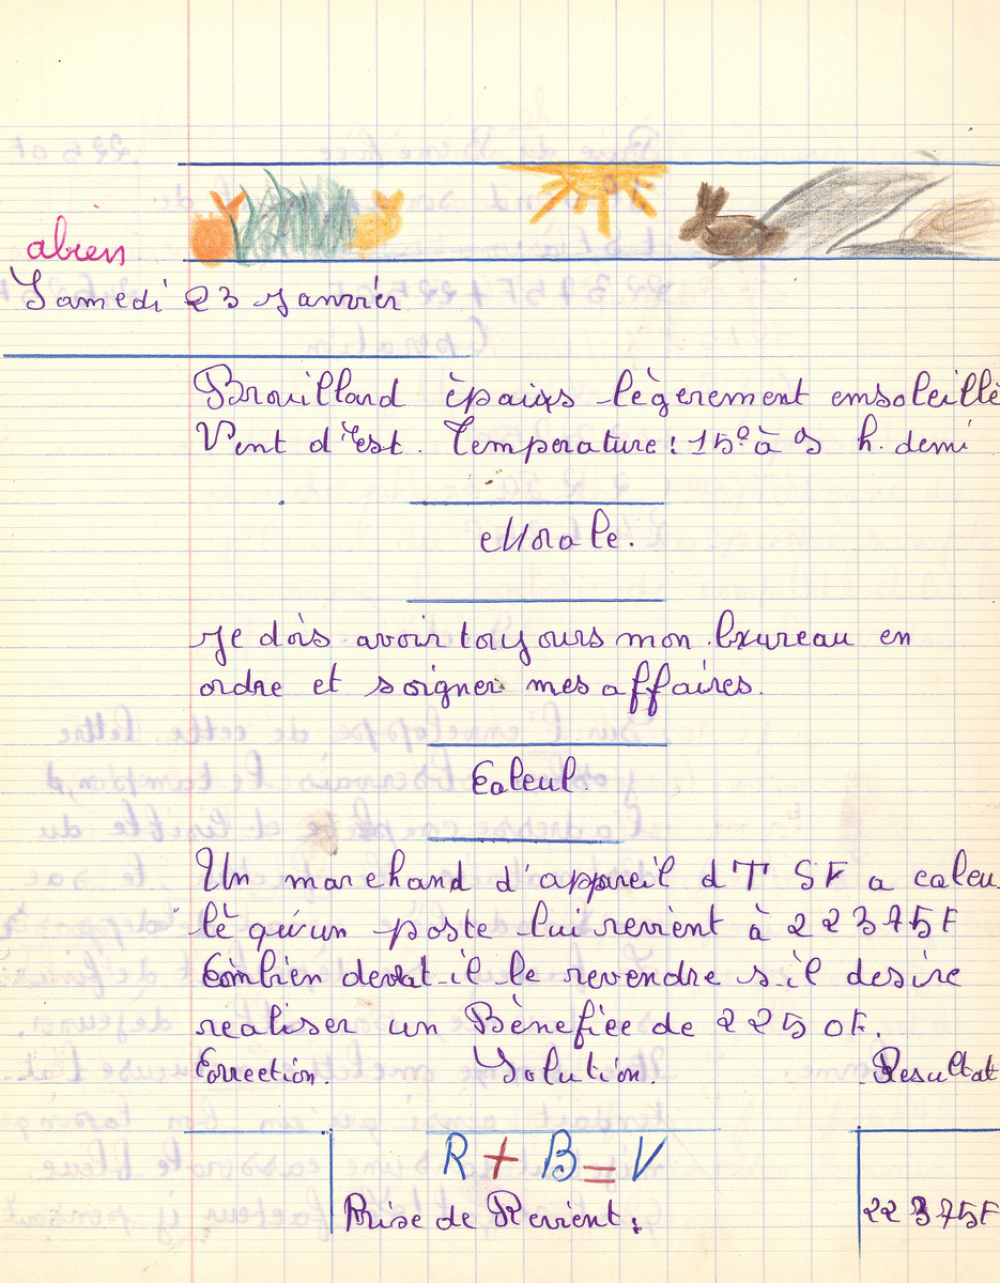 abien
Samedi 23 Janvier
Brouillard èpaixs lègerement ensoleillé
Vent d'Est. Temperature : 15° à 9 h. demi
Morale.
Je dois avoir toujours mon bureau en
ordre et soigner mes affaires.
Calcul.
Un marchand d'appareil d T S F a calcu
lè qu'un poste lui revient à 22375F
Combien devrat-il le revendre s'il desire
realiser un Bènefice de 2250F.
Correction. Solution. Resultat
R + B = V
Prise de Revient : 22375F